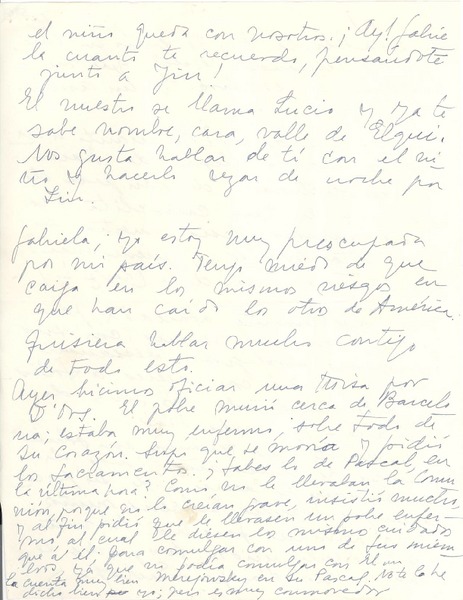 el niño queda con nosotros. ¡Ay! Gabrie
la cuanto te recuerdo, pensándote
junto a Yin!
El nuestro se llama Lucio y ya te
sabe nombre, cara, valle de Elqui.
Nos gusta hablar de ti con el ni
ño y hacerlo rezar de noche por
Yin.
Gabriela; yo estoy muy preocupada
por mi país. Tengo miedo de que
caiga en los mismos riesgos en
que han caído los otros de América.
Quisiera hablar mucho contigo
de todo esto.
Ayer hicimos oficiar una Misa por
D'Ors. El pobre murió cerca de Barcelo
na; estaba muy enfermo, sobre todo de
su corazón. Supo que se moría y pidió
los Sacramentos. ¿Sabes lo de Pascal, en
la última hora? Como no le llevaban la Comu
nión, porque no lo creían grave, insistió mucho,
y al fin pidió que le llevasen un pobre enfer
mo al cual le diesen los mismos cuidados
que a él, para comulgar con uno de sus miem
bros, ya que no podía comulgar con El. 
lo cuenta muy bien Merejowsky en su Pascal. No te lo he
dicho bien yo; pero es muy conmovedor